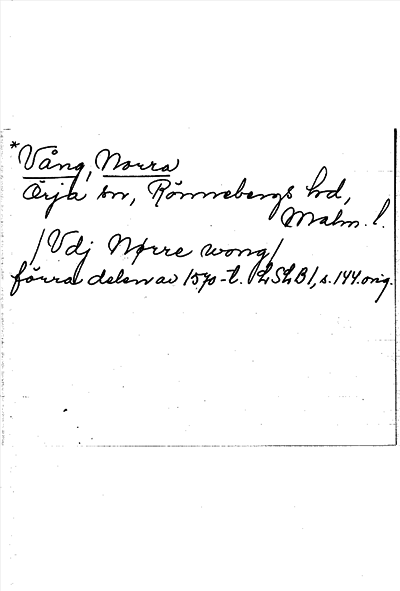 *Vång, Norra
Örja sn, Rönnebergs hd,
Malm. l.
/Vdj Nørre wong/
förra delen av 1570-t. LSLB1, s. 144. orig.